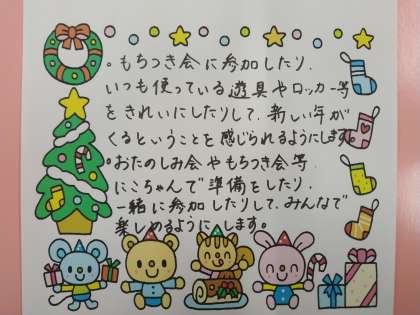 。もちつき会に参加したり、
いつも使っている遊具やロッカー等
をきれいにしたりして、新しい年が
くるということを感じられるようにします。
。おたのしみ会やもちつき会等、
にこちゃんで準備をしたり、
一緒に参加したりして、みんなで
楽しめるようにします。